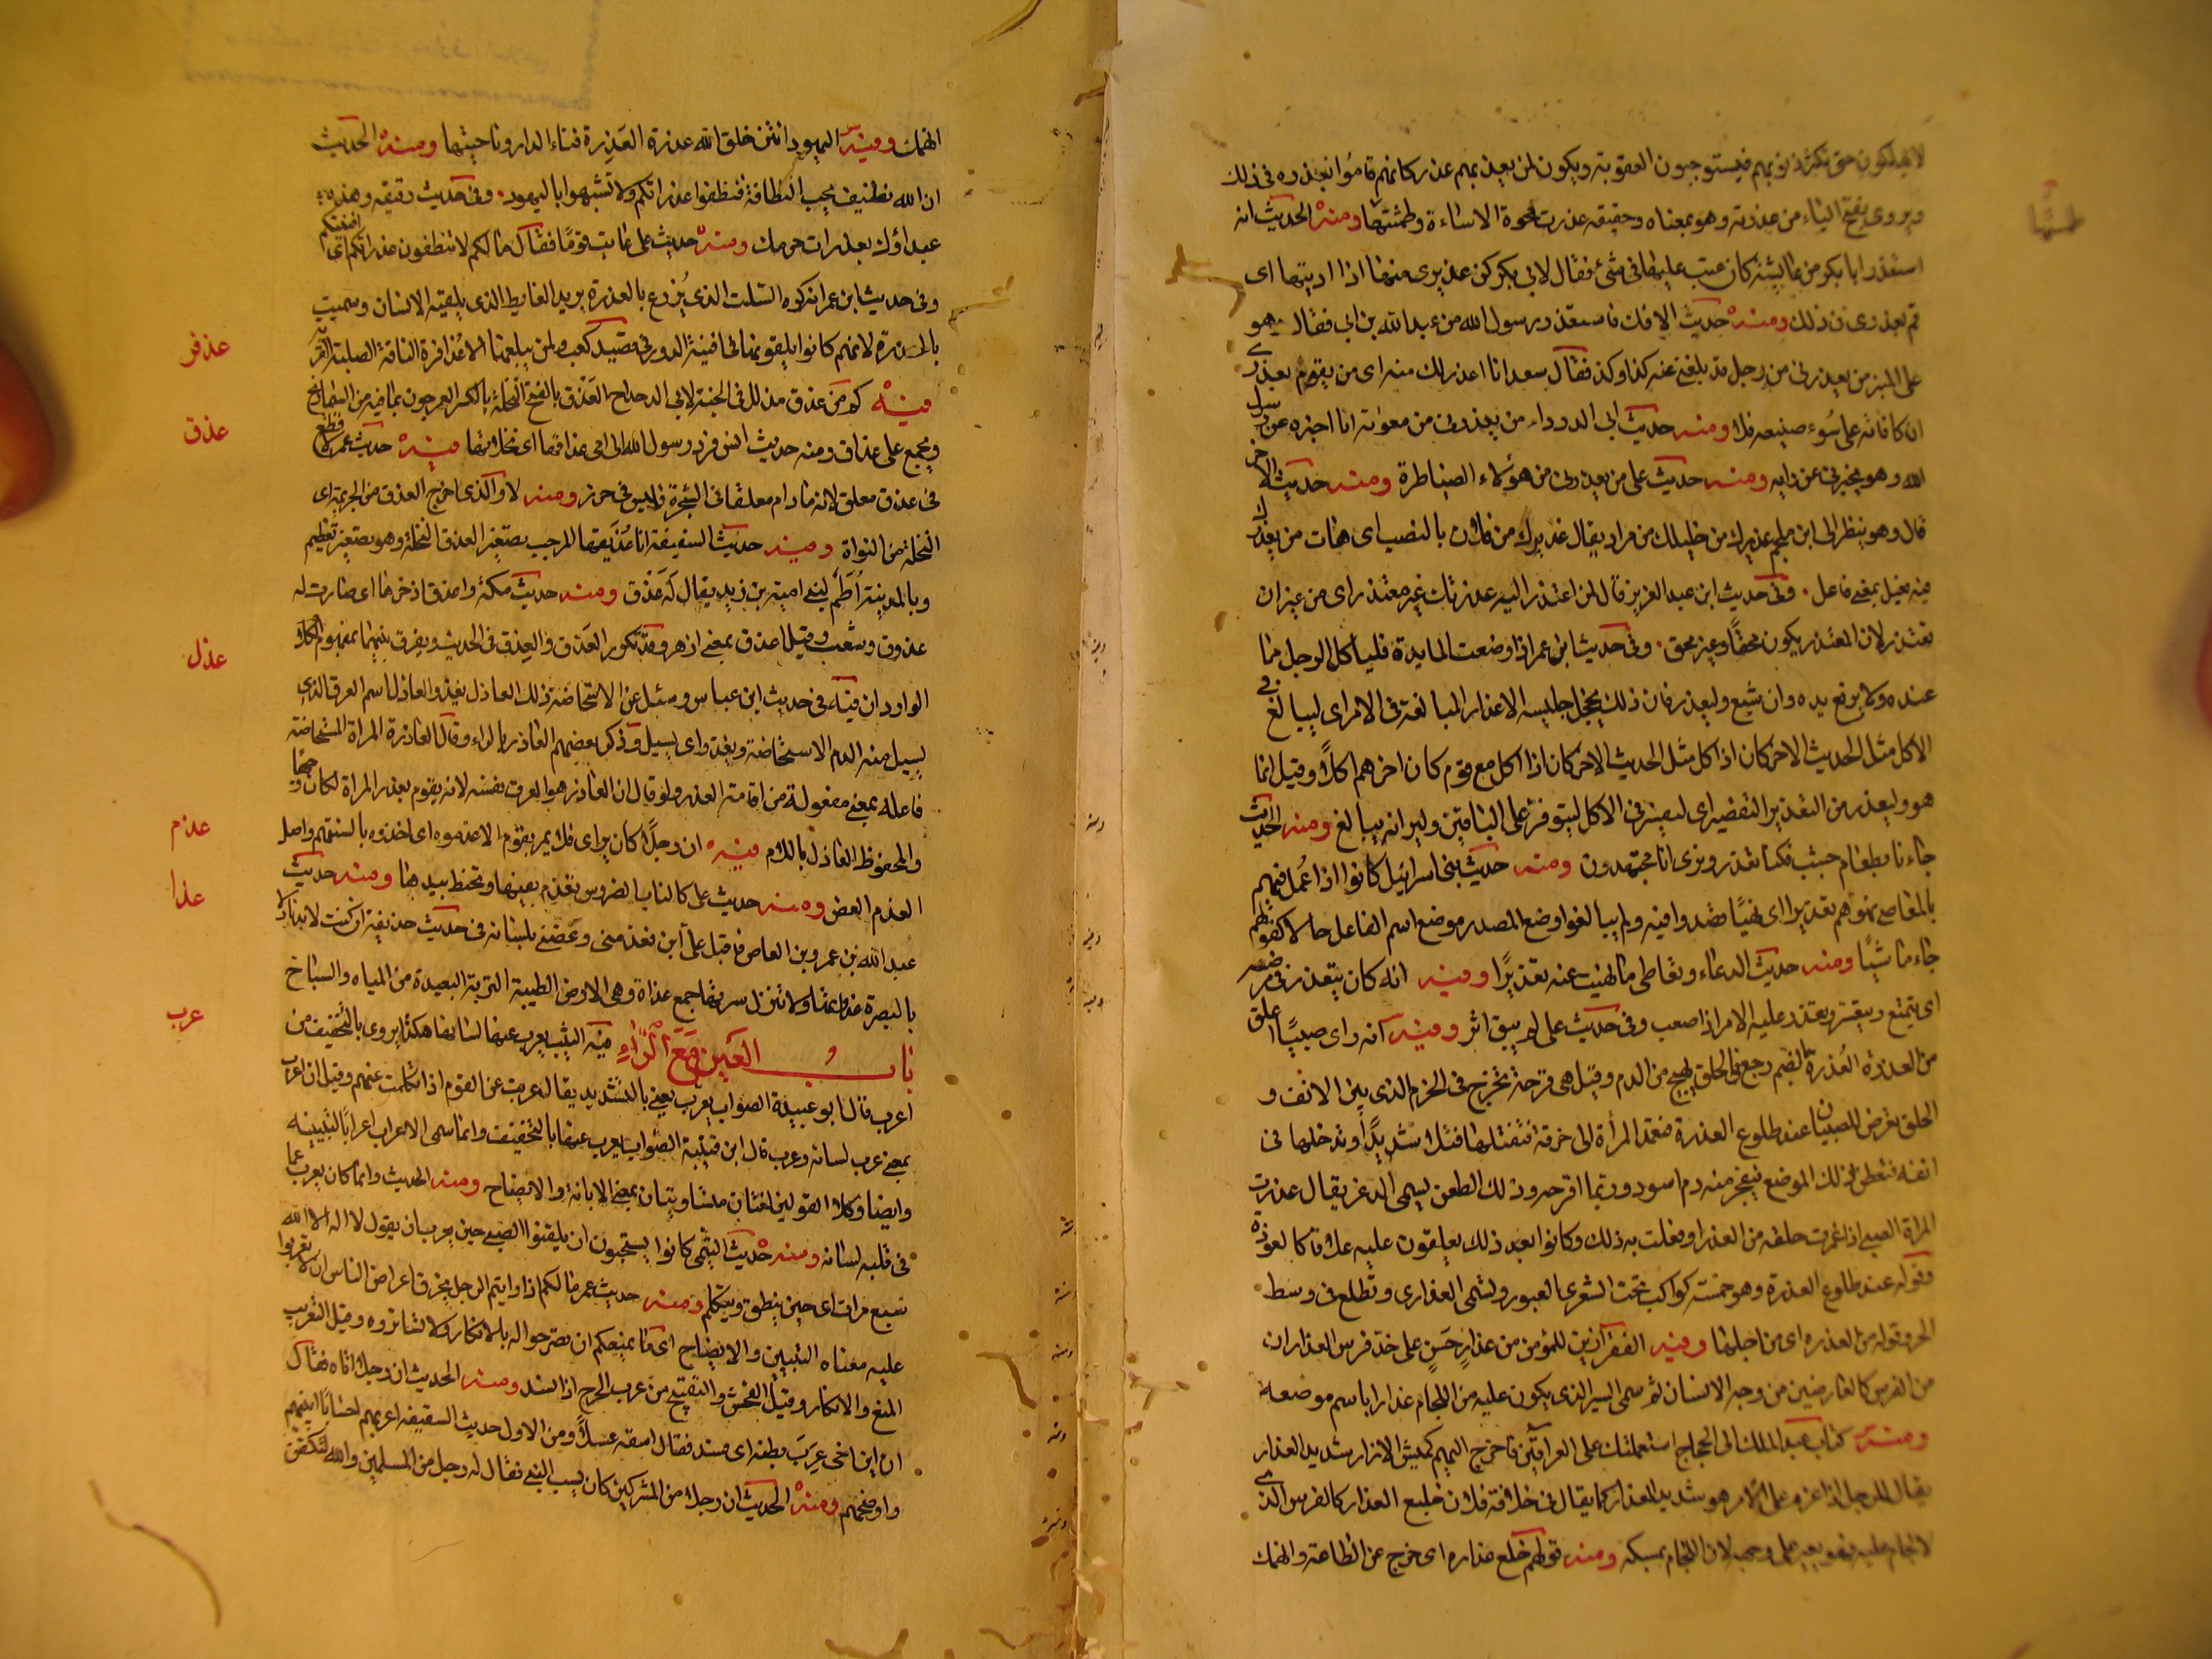 لا يهلكون حتى تكثر ذنوبهم فيستوجبون العقوبة ويكون لمن يعذبهم عذر كانهم قاموا بعذره في ذلك
ويروى بفتح الياء من عذرته وهو بمعناه وحقيقة عذرت محوة الاساءة وطمثتها ومنه الحديث انه
طمسها
استعذر ابا بكر من عايشة كان عتب عليها في شئ فقال لابي بكر كن عذيري منها اذا ادبتها اى
قم بعذري في ذلك ومنه حديث الافك فاستعذر رسول الله من عبد الله بن ابى فقال وهو
على المنبر من يعذرنى من رجل قد بلغنى عنه كذا وكذا فقال سعد انا اعذرك منه اى من يقوم بعذرى
ان كافاته على سوء صنيعه فلا ومنه حديث ابى الدرداء من يعذرنى من معوية انا اخبره عن رسول
الله وهو يخبرنى عن رايه ومنه حديث على من يعذرنى من هؤلاء الضياطرة ومنه حديثه الاخر
قال وهو ينظر الى ابن ملجم عذيرك من خليلك من مراد يقال عذيرك من فلان بالنصب اى هات من يعذرك
فيه فعيل بمعنى فاعل وفى حديث ابن عبد العزيز قال لمن اعتذر اليه عذرتك غير معتذر اى من غير ان
تعتذر لان المعتذر يكون محقا وغير محق وفى حديث ابن عمر اذا وضعت المايدة فلياكل الرجل مما
عنده ولا يرفع يده وان شبع وليعذر فان ذلك يخجل جليسه الاعذار المبالغة فى الامر اى ليبالغ فى
الاكل مثل الحديث الاخر كان اذا اكل مثل الحديث الاخر كان اذا اكل مع قوم كان اخرهم اكلا وقيل انما
هو وليعذر من التعذير التقصير اى ليقصر فى الاكل ليتوفر على الباقين ولير انه يبالغ ومنه الحديث
جاءنا بطعام جشب فكنا نعذر ونرى انا مجتهدون ومنه حديث بنى اسرائيل كانوا اذا عمل فيهم
بالمعاصى نهوهم تعذيرا اى نهيا قصروا فيه ولم يبالغوا وضع المصدر موضع اسم الفاعل حالا كقولهم
جاء مشيا ومنه حديث الدعاء وتعاطى ما نهيت عنه تعذيرا وفيه انه كان يتعذر فى مرضه
اى يتمنع ويتعسر وتعذر عليه الامر اذا صعب وفى حديث على لم يبق اثر وفيه انه راى صبيا اعلق
من العذرة العذرة بالضم وجع فى الحلق يهيج من الدم وقيل هى قرحة تخرج فى الخرم الذى بين الانف و
الحلق تعرض للصبيان عند طلوع العذرة فتعمد المرأة الى خرقة فتفتلها فتلا شديدا وتدخلها فى
انفه فتطعن ذلك الموضع فيتفجر منه دم اسود وربما اقرحه وذلك الطعن يسمى الدغر يقال عذرت
المراة الصبى اذا غمزت حلقه من العذرة او فعلت به ذلك وكانوا بعد ذلك يعلقون عليه علاقا كالعوذة
وقوله عند طلوع العذرة وهو خمسة كواكب تحت الشعرى العبور وتسمى العذارى وتطلع فى وسط
الحر وقوله من العذره اى من اجلها وفيه الفقر ازين للمؤمن من عذار حسن على خد فرس العذاران
من الفرس كالعارضين من وجه الانسان ثم سمى السير الذى يكون عليه من اللجام عذارا باسم موضعه
ومنه كتاب عبد الملك الى الحجاج استعملتك على العراقين فاخرج اليهم كميش الازار شديد العذار
يقال للرجل اذا عزم على الامر هو شديد العذار كما يقال فى خلافه فلان خليع العذار كالفرس الذى
لا لجام عليه فهو يعير على وجهه لان اللجام يمسكه ومنه قولهم خلع عذاره اى خرج عن الطاعة وانهمك
انهمك وفيه اليهود انتن خلق الله عذرة العذرة فناء الدار وناحيتها ومنه الحديث
ان الله نظيف يحب النظافة فنظفوا عذراتكم ولا تشبهوا باليهود وفى حديث رقيقه وهذه
عبداؤك بعذرات حرمك ومنه حديث على عاتب قوما فقال ما لكم لا تنظفون عذراتكم اى افنيتكم
وفى حديث ابن عمر انه كره السلت الذى يزرع بالعذرة يريد الغايط الذى يلقيه الانسان وسميت
بالعذرة لانهم كانوا يلقونها فى افنية الدور فى قصيد كعب ولن يبلغها الا عذافرة الناقة الصلبة القوية
عذفر
فيه كم من عذق مذلل فى الجنة لابى الدحداح العذق بالفتح النخلة بالكسر العرجون بما فيه من الشماريخ
عذق
ويجمع على عذاق ومنه حديث انس فرد رسول الله الى امى عذاقها اى نخلاتها فيه حديث عمر لا قطع
فى عذق معلق لانه ما دام معلقا فى الشجرة فليس فى حرز ومنه لا والذى اخرج العذق من الجريمة اى
النخلة من النواة ومنه حديث السقيفة انا عذيقها المرجب بتصغير العذق النخلة وهو تصغير تعظيم
وبالمدينة اطم لبنى امية بن زيد يقال له عذق ومنه حديث مكة واعذق اذخرها اى صارت له
عذوق وشعب وقيل اعذق بمعنى ازهر وقد تكرر العذق والعذق فى الحديث ويفرق بينهما بمفهوم الكلام
عذل
الوارد ان فيه فى حديث ابن عباس وسئل عن الاستحاضة ذلك العاذل يغذو العاذل اسم العرق الذى
يسيل منه الدم الاستحاضة ويغذو اى يسيل وذكر بعضهم العاذر بالراء وقال العاذرة المراة المستحاضة
فاعله بمعنى مفعولة من اقامة العذر ولو قال ان العاذر هو العرق نفسه لانه يقوم بعذر المراة لكان وجها
والمحفوظ العاذل باللام فيه ان رجلا كان يراى فلا يمر بقوم الا عذموه اى اخذوه بالسنتهم واصل
عذم
العذم العض ومنه حديث على كالناب الضروس تعذم بفيها وتخبط بيدها ومنه حديث
عبد الله بن عمرو بن العاص فاقبل على ابى فعذمنى وعضنى بلسانه فى حديث حذيفة ان كنت لا بد نازلا
عذا
بالبصرة عذواتها ولا تنزل سرتها جمع عذاة وهى الارض الطيبة التربة البعيدة من المياه والسباخ
باب العين مع الراء فيه الثيب يعرب عنها لسانها هكذا يروى بالتخفيف من
عرب
اعرب قال ابو عبيدة الصواب يعرب يعنى بالتشديد يقال عربت عن القوم اذا تكلمت عنهم وقيل ان اعرب
بمعنى عرب لسانه وعرب قال ابن قتيبة الصواب يعرب عنها بالتخفيف وانما سمى الاعراب اعرابا لتبيينه
وايضا وكلا القولين لغتان متساويتان بمعنى الابانة والايضاح ومنه الحديث وانما كان يعرب عما
فى قلبه لسانه ومنه حديث التيمى كانوا يستحبون ان يلقنوا الصبى حين يعرب ان يقول لا اله الا الله
سبع مرات اى حين ينطق ويتكلم ومنه حديث عمر ما لكم اذا رايتم الرجل يخرق اعراض الناس ان لا تعربوا
عليه معناه التبيين والايضاح اى ما يمنعكم ان تصرحوا له بالانكار ولا تساتروه وقيل التعريب
المنع والانكار وقيل الفحش والتقبيح من عرب الجرح اذا فسد ومنه الحديث ان رجلا اتاه فقال
ان ابن اخى عرب بطنه اى فسد فقال اسقه عسلا ومن الاول حديث السقيفة اعربهم احسابا ابينهم
واوضحهم ومنه الحديث ان رجلا من المشركين كان يسب النبى فقال له رجل من المسلمين والله لتكفن